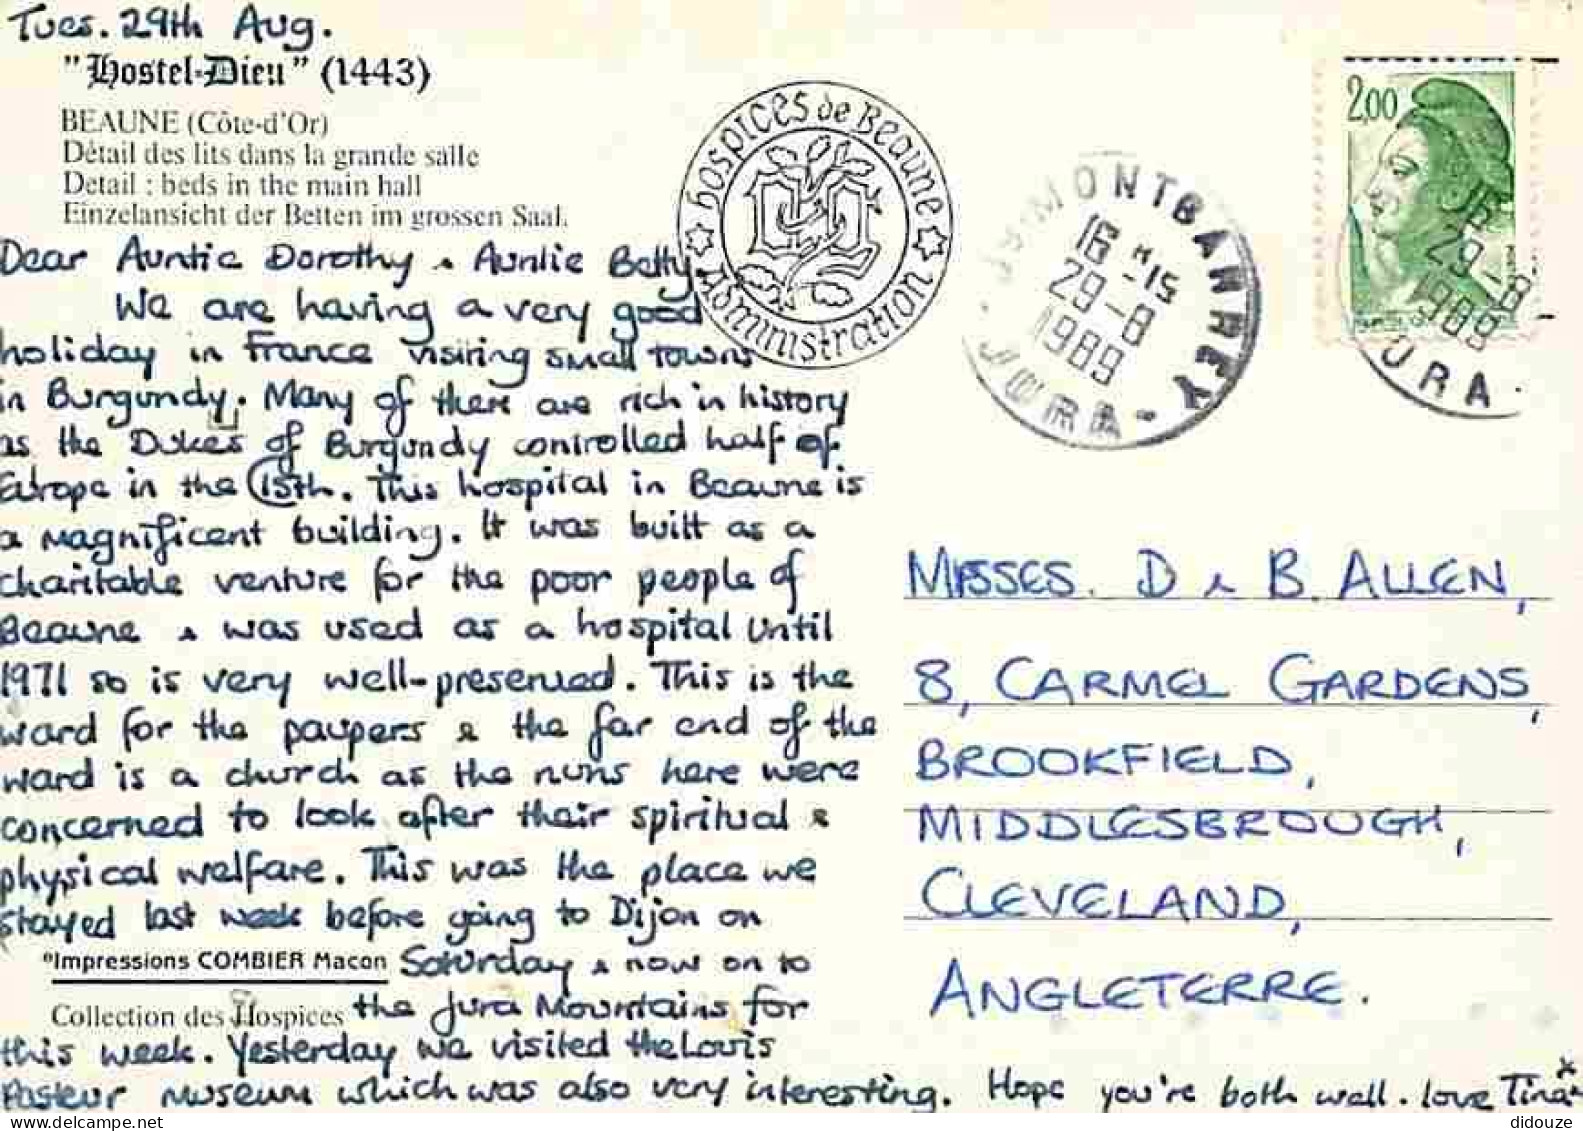 Tues. 29th Aug.
"Hostel-Dieu" (1443)
BEAUNE (Côte-d'Or)
Détail des lits dans la grande salle
Detail : beds in the main hall
Einzelansicht der Betten im grossen Saal.
Dear Auntie Dorothy & Auntie Betty
We are having a very good
holiday in France visiting small towns
in Burgundy. Many of there are rich in history
as the Dukes of Burgundy controlled half of
Europe in the 15th. This hospital in Beaune is
a magnificent building. It was built as a
charitable venture for the poor people of
Beaune & was used as a hospital until
1971 so is very well-preserved. This is the
ward for the paupers & the far end of the
ward is a church as the nuns here were
concerned to look after their spiritual &
physical welfare. This was the place we
stayed last week before going to Dijon on
Saturday & now on to
the Jura Mountains for
this week. Yesterday we visited the Louis
Pasteur museum which was also very interesting. Hope you're both well. love Tina
*Impressions COMBIER Macon
Collection des Hospices
hospices de Beaune
Administration
MONTBARREY
16 H 15
29-8
1989
JURA
2,00
16
29-8
1989
URA
MISSES. D & B. ALLEN,
8, CARMEL GARDENS,
BROOKFIELD,
MIDDLESBROUGH,
CLEVELAND,
ANGLETERRE.
didouze